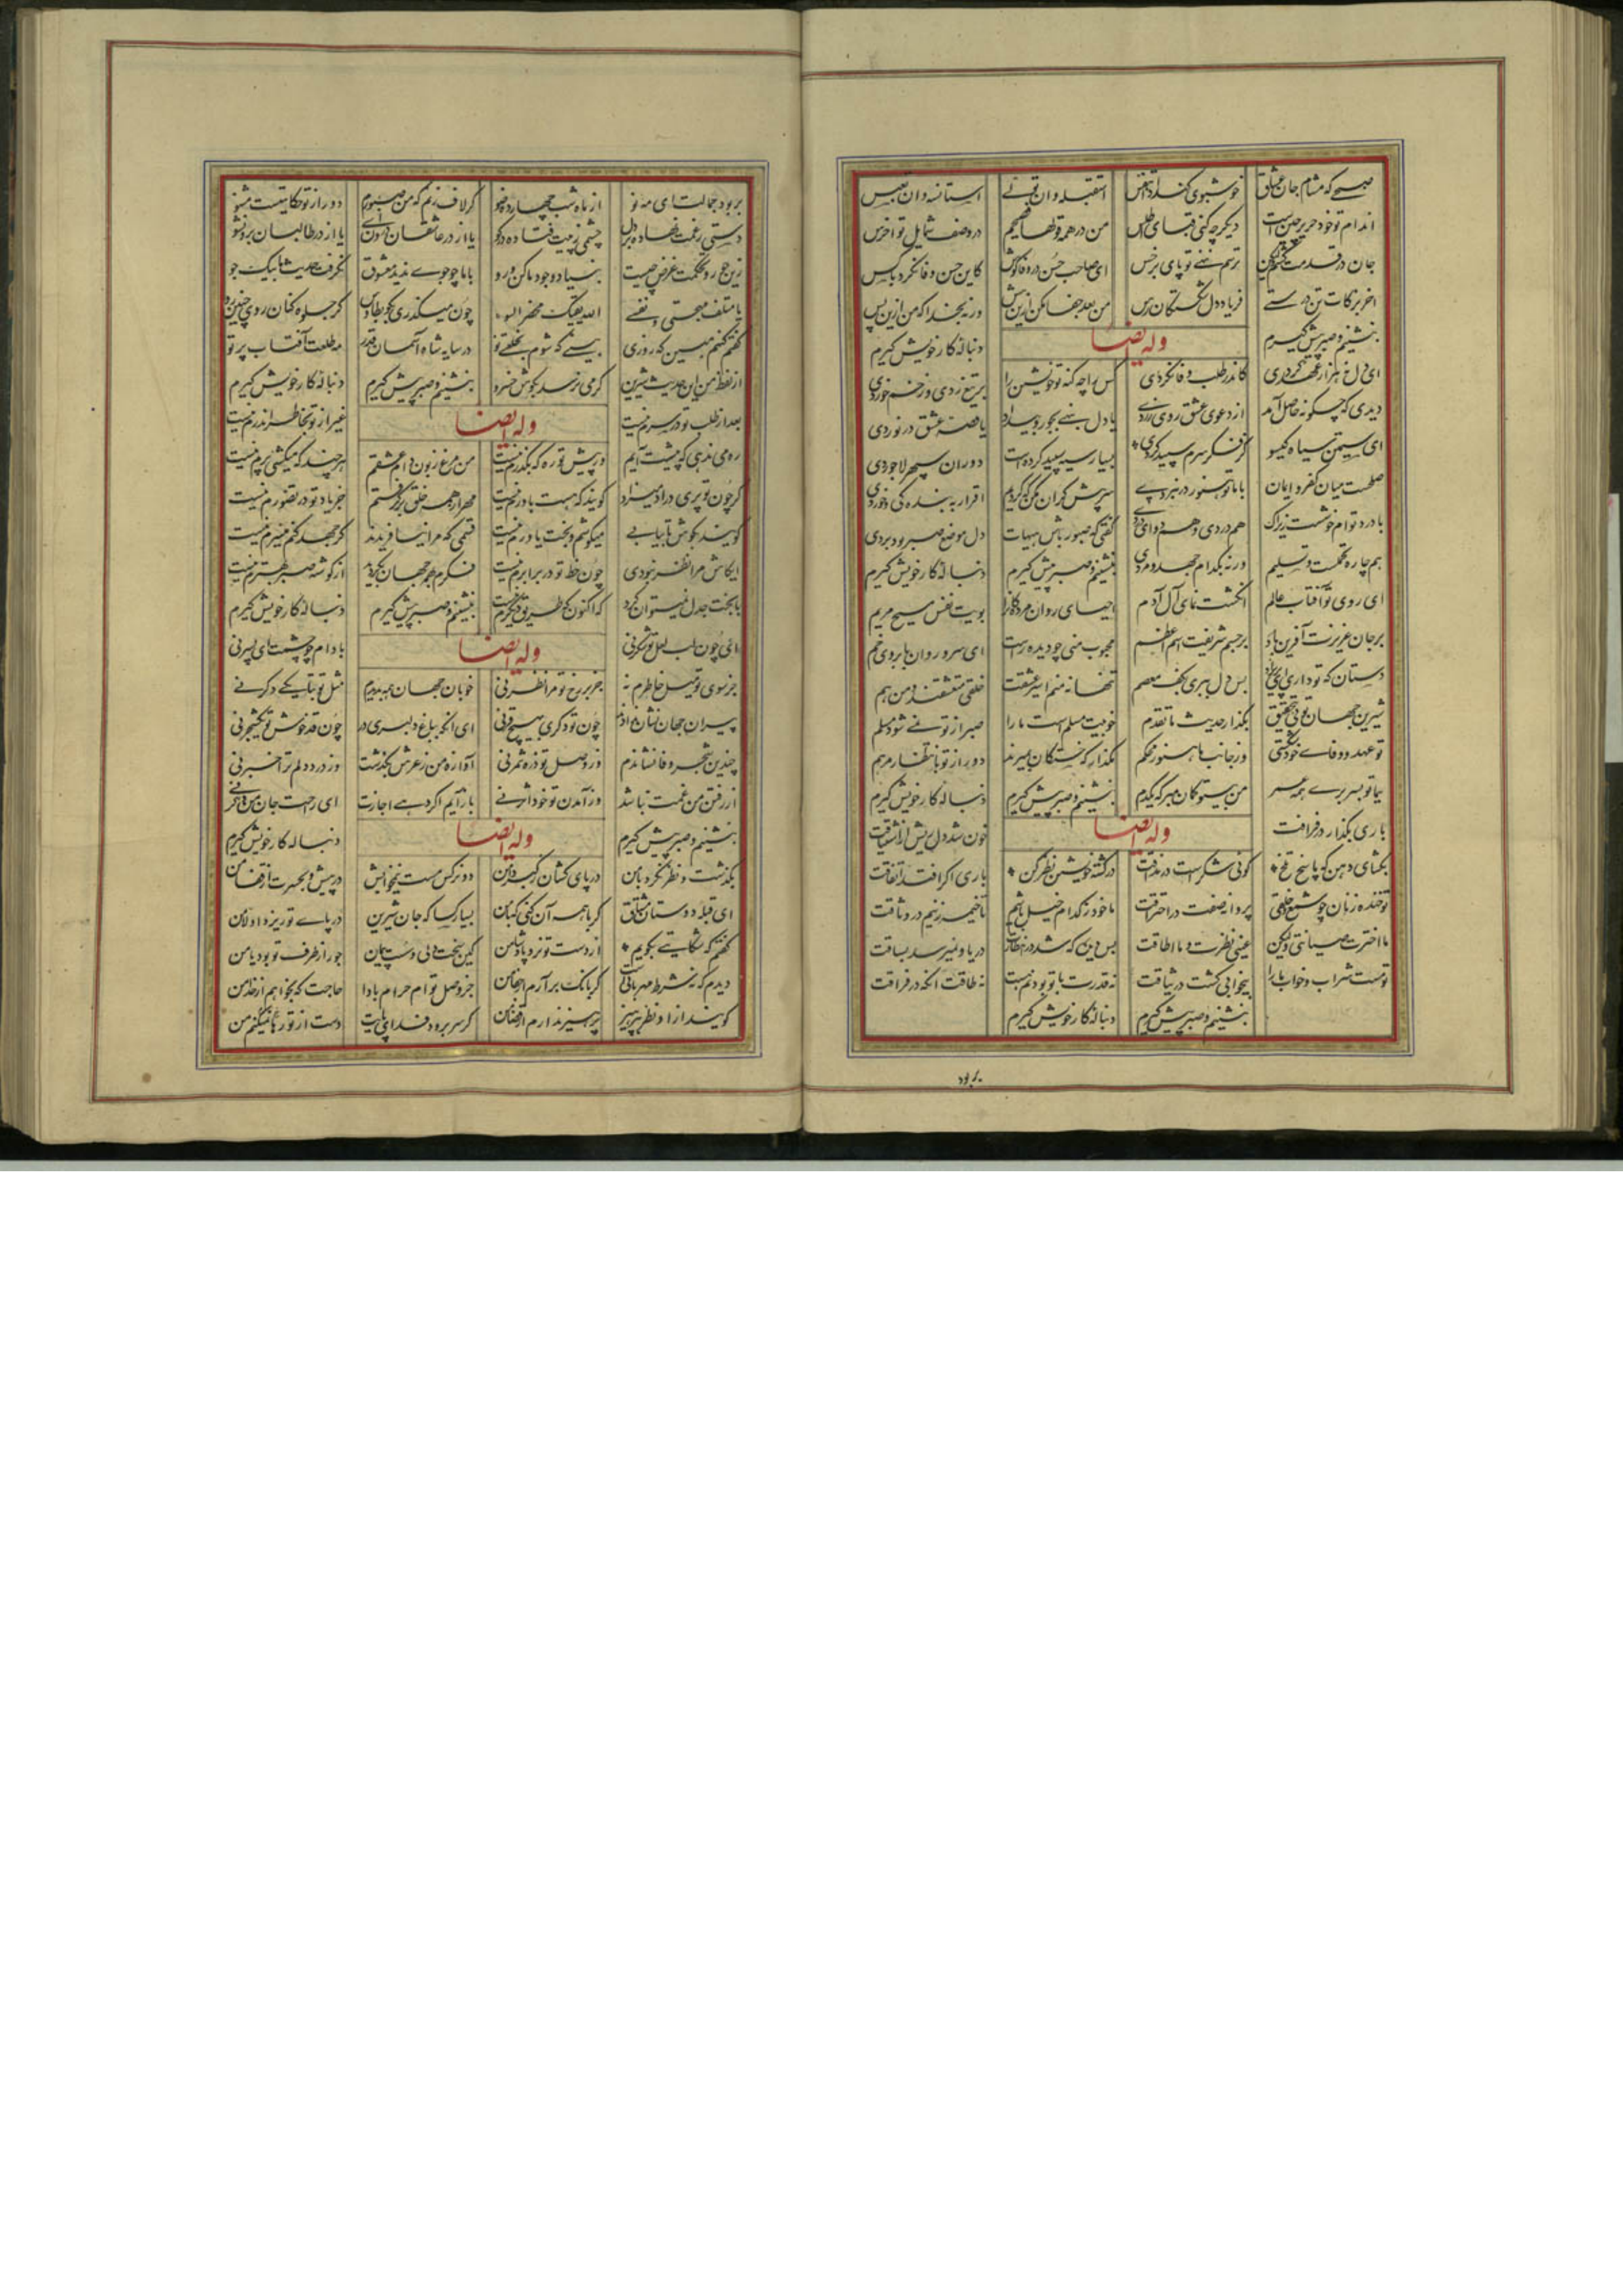 صبحی که مشام جان عشاق خوشبوی کند اذا تنفس استقبله وان تولی استانسه وان تعبس
اندام تو خود حریر چین است دیگر چه کنی قبای اطلس من در همه قولها فصیحم در وصف شمایل تو اخرس
جان در قدمت کنم ولیکن ترسم ننهی تو پای برخس ای صاحب حسن در وفا کوش کاین حسن وفا نکرد باکس
اخر بزکات تن درستی فریاد دل شکستگان رس من بعد جفا مکن ازین بیش ورنه بخدا که من ازین پس
بنشینم و صبر پیش گیرم وله ایضا دنباله کار خویش گیرم
ای دل نه هزار عهد کردی کاندر طلب وفا نگردی کس را چه گنه تو خویشتن را بر تیغ زدی و زخم خوردی
دیدی که چگونه حاصل آمد از دعوی عشق روی زردی یا دل بنهی بجور و بیداد یا قصه عشق در نوردی
ای سیمتن سیاه گیسو کز فکر سرم سپید کردی بسیار سیه سپید کرده است دوران سپهر لاجوردی
صلحست میان کفر و ایمان با ما تو هنوز در نبردی سر بیش گران مکن که کردیم اقرار به بندگی و خوردی
با درد توام خوشست زیراک هم دردی و هم دوای دردی گفتی که صبور باش هیهات دل موضع صبر بود بردی
هم چاره تحمل است و تسلیم ورنه بکدام جهد و مردی بنشینم و صبر پیش گیرم دنباله کار خویش گیرم
ای روی تو آفتاب عالم انگشت نمای آل آدم احیای روان مردگان را بویت نفس مسیح مریم
بر جان عزیزت آفرین باد بر جسم شریفت اسم اعظم محبوب منی چو دیده راست ای سرو روان بابروی خم
دستان که تو داری ای پریزاد بس دل ببری بکف و معصم تنها نه منم اسیر عشقت خلقی متعشقند و من هم
شیرین جهان توئی بتحقیق بگذار حدیث ما تقدم خوبیت مسلم است ما را صبر از تو نمی شود مسلم
تو عهد و وفای خود شکستی وز جانب ما هنوز محکم مگذار که خستگان بمیرند دور از تو بانتظار مرهم
بیما تو بسر بری همه عمر من بیتو گمان مبر که یکدم بنشینم و صبر پیش گیرم دنباله کار خویش گیرم
باری بگذار در فراقت وله ایضا خون شد دل ریش از اشتیاقت
بگشای دهن که پاسخ تلخ گوئی شکر است در مذاقت در کشته خویشتن نظر کن باری اگر افتد اتفاقت
تو خنده زنان چو شمع و خلقی پروانه صفت در احتراقت ما خود ز کدام خیل باشیم تا خیمه زنیم در وثاقت
ما اخترت صیانتی ولیکن عینی نظرت و ما اطاقت بس دیده که شد در انتظارت دریا و نمیرسد بساقت
تو مست شراب و خواب ما را بیخوابی کشت در وثاقت نه قدرت با تو بودنم هست نه طاقت آنکه در فراقت
بنشینم و صبر پیش گیرم دنباله کار خویش گیرم
بربود
بربود جمالت ای مه نو از ماه شب چهارده ضو گر لاف زنم که من صبورم دور از تو حکایتیست مشنو
دستی ز غمت نهاده بر دل چشمی ز پیت فتاده در گو یا از در عاشقان درون آی یا از در طالبان برون شو
زین جور و تحکمت غرض چیست بنیاد وجود ما کن و رو یا ما جوجوی ندید معشوق نگرفت حدیث ما بیک جو
یا متلف مهجتی و نفسی الله یقیک محضر السو چون میگذری بکوی عطار گر جلوه کنان روی چنین رو
گفتم کنم مبین که روزی بینی که شوم بخلعتی نو در سایه شاه آسمان قدر مه طلعت آفتاب پرتو
از لفظ من این حدیث شیرین گر می نرسد بگوش خسرو بنشینم و صبر پیش گیرم دنباله کار خویش گیرم
بعد از طلب تو در سرم نیست وله ایضا غیر از تو بخاطر اندرم نیست
ره می ندهی که پیشت آیم وز پیش تو ره که بگذرم نیست من مرغ زبون دام عشقم هر چند که میکشی پرم نیست
گر چون تو پری در آدمیزاد گویند که هست باورم نیست مهر از همه خلق برگرفتم جز یاد تو در تصورم نیست
گویند بکوش تا بیابی میکوشم و بخت یاورم نیست قسمی که مرا نیافریدند گر جهد کنم میسرم نیست
ایکاش مرا نظر نبودی چون حظ تو در برابرم نیست فکرم بهمه جهان بگردید از گوشه صبر بهترم نیست
با بخت جدل نمیتوان کرد اکنون که طریق دیگرم نیست بنشینم و صبر پیش گیرم دنباله کار خویش گیرم
ای چون لب لعل تو شکرنی وله ایضا بادام چو چشمت ای پسر نی
جز سوی تو میل خاطرم نه جز بر رخ تو مرا نظر نی خوبان جهان همه بدیدم مثل تو بتا یکی دگر نی
پیران جهان نشان ندادند چون تو دگری بهیچ قرنی ای آنکه بباغ دلبری در چون قد خوش تو یک شجر نی
چندین شجر وفا نشاندم وز وصل تو ذره ثمر نی آوازه من ز عرش بگذشت وز درد دلم ترا خبر نی
از رفتن من غمت نباشد وز آمدن تو خود اثر نی باز آیم اگر دهی اجازت ای راحت جان من وگر نی
بنشینم و صبر پیش گیرم وله ایضا دنباله کار خویش گیرم
بگذشت و نظر نکرد با من در پای کشان ز کبر دامن دو نرگس مست نیم خوابش در پیش و بحسرت از قفا من
ای قبله دوستان مشتاق گر با همه آن کنی که با من بسیار کسا که جان شیرین در پای تو ریزد اولا من
گفتم که شکایتی بگویم از دست تو نزد پادشا من کاین سخت دلی و سست پیمان جور از طرف تو بود یا من
دیدم که نه شرط مهربانیست گر بانگ برآرم از جفا من جز وصل توام حرام بادا حاجت که بخواهم از خدا من
گویند از او نظر بپرهیز پرهیز ندارم از قضا من گر سر برود فدای پایت دست از تو رها نمیکنم من